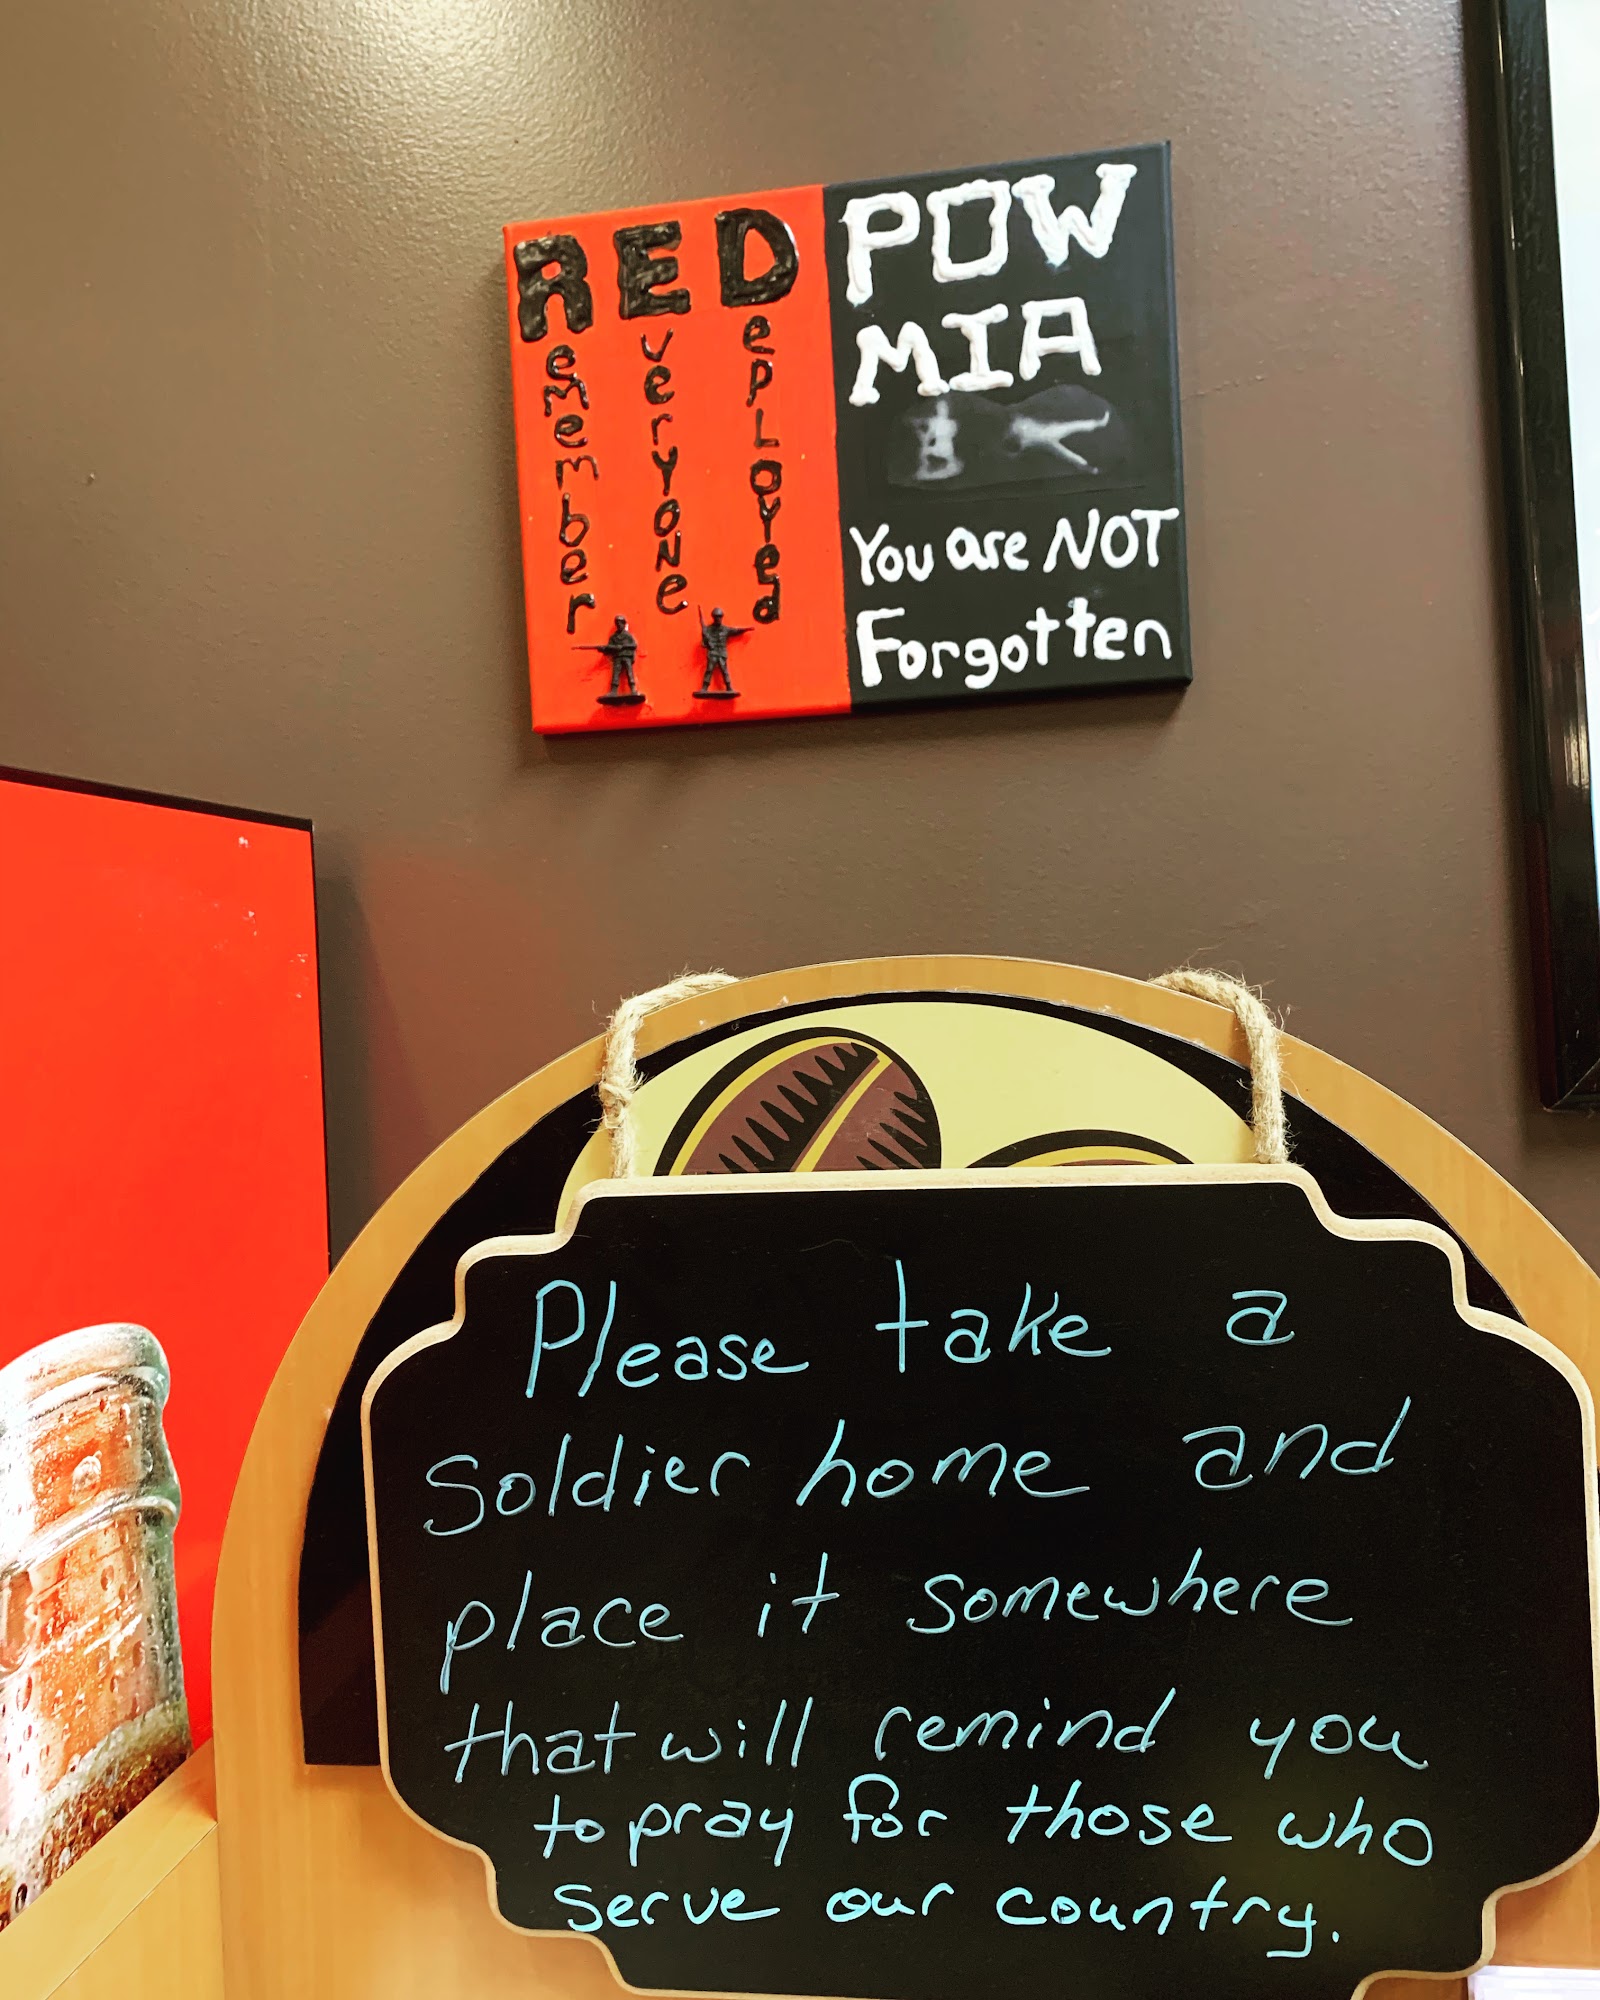 RED
Remember
Everyone
Deployed
POW
MIA
You are NOT
Forgotten
Please take a
soldier home and
place it somewhere
that will remind you
to pray for those who
serve our country.